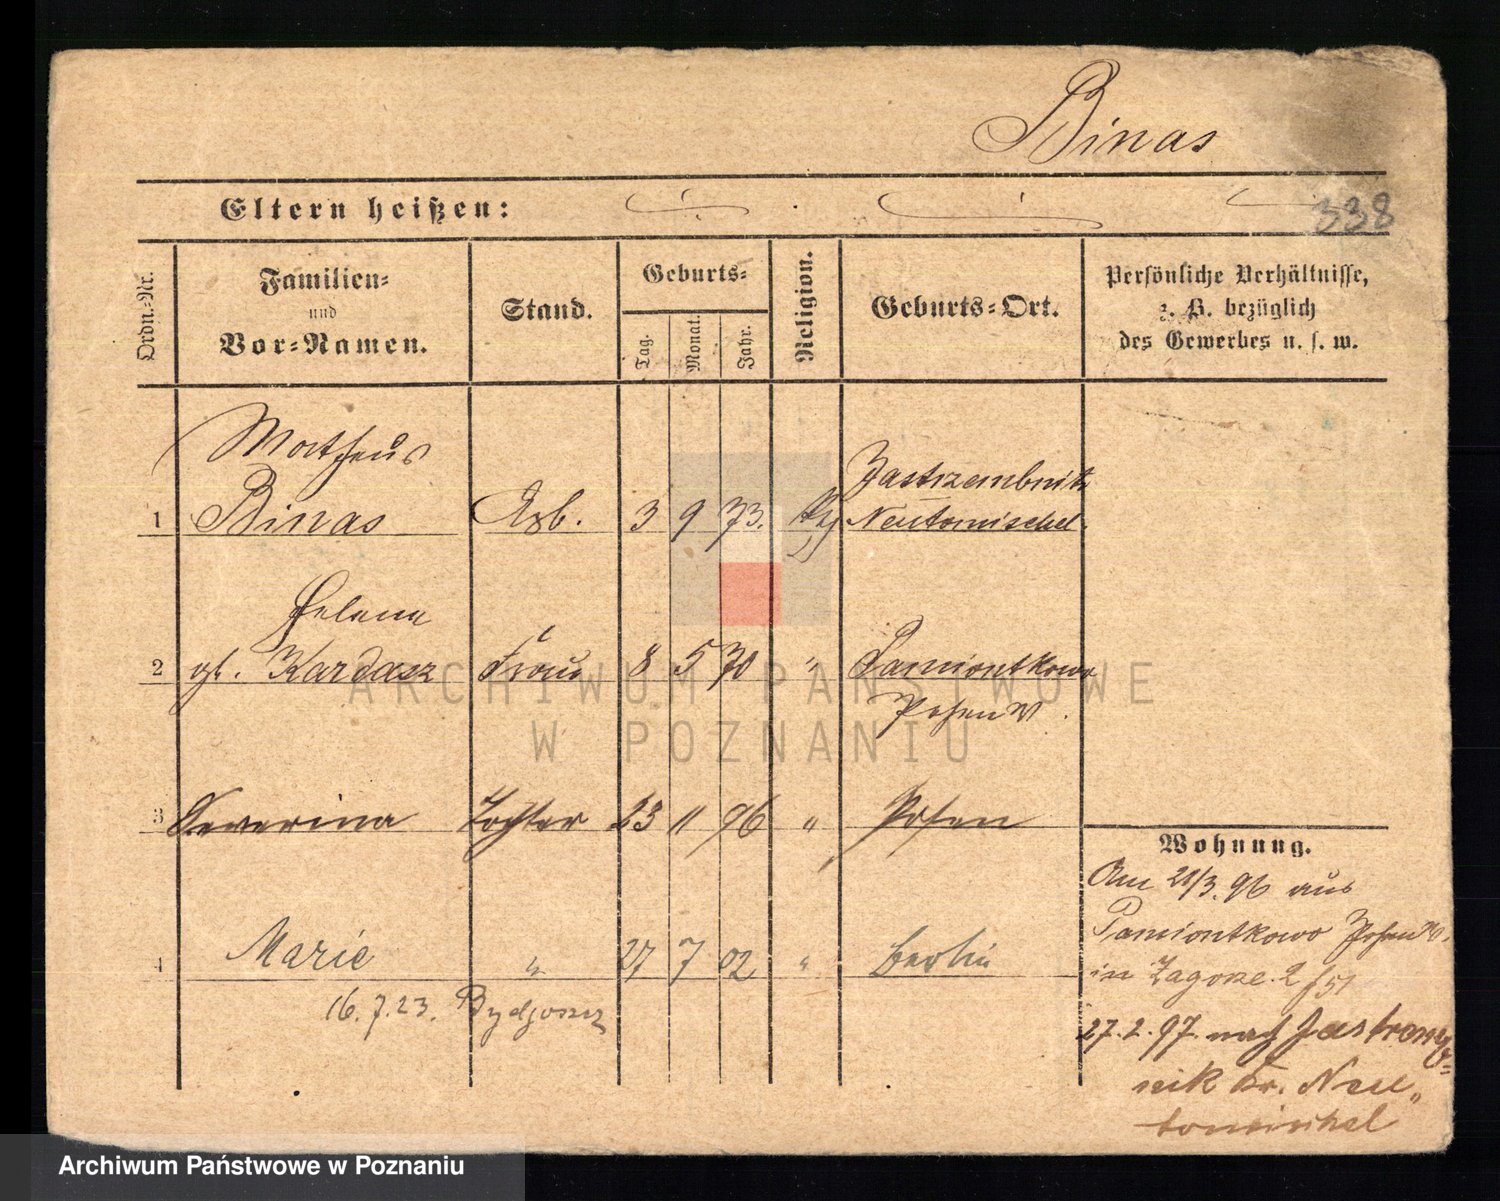 Binas
Eltern heißen:
338
Ordn.-Nr.
Familien-
und
Vor-Namen.
Stand.
Geburts-
Tag.
Monat.
Jahr.
Religion.
Geburts-Ort.
Persönliche Verhältnisse,
z. B. bezüglich
des Gewerbes u. s. w.
Matheus
1 Binas Arb. 3 9 73. Neutomischel.
Helena
2 gb. Kardasz Frau 8 5 70 " Pamiontkowo
Posen W.
3 Severina Tochter 23 11 96 " Posen
4 Marie " 27 7 02 " Berlin
16.7.23. Bydgoszcz
Wohnung.
Am 21/3. 96 aus
Pamiontkowo Posen W.
in Zagorze 2
27.2.97. nach
Kr. Neu-
tomischel
ARCHIWUM PAŃSTWOWE
W POZNANIU
Archiwum Państwowe w Poznaniu